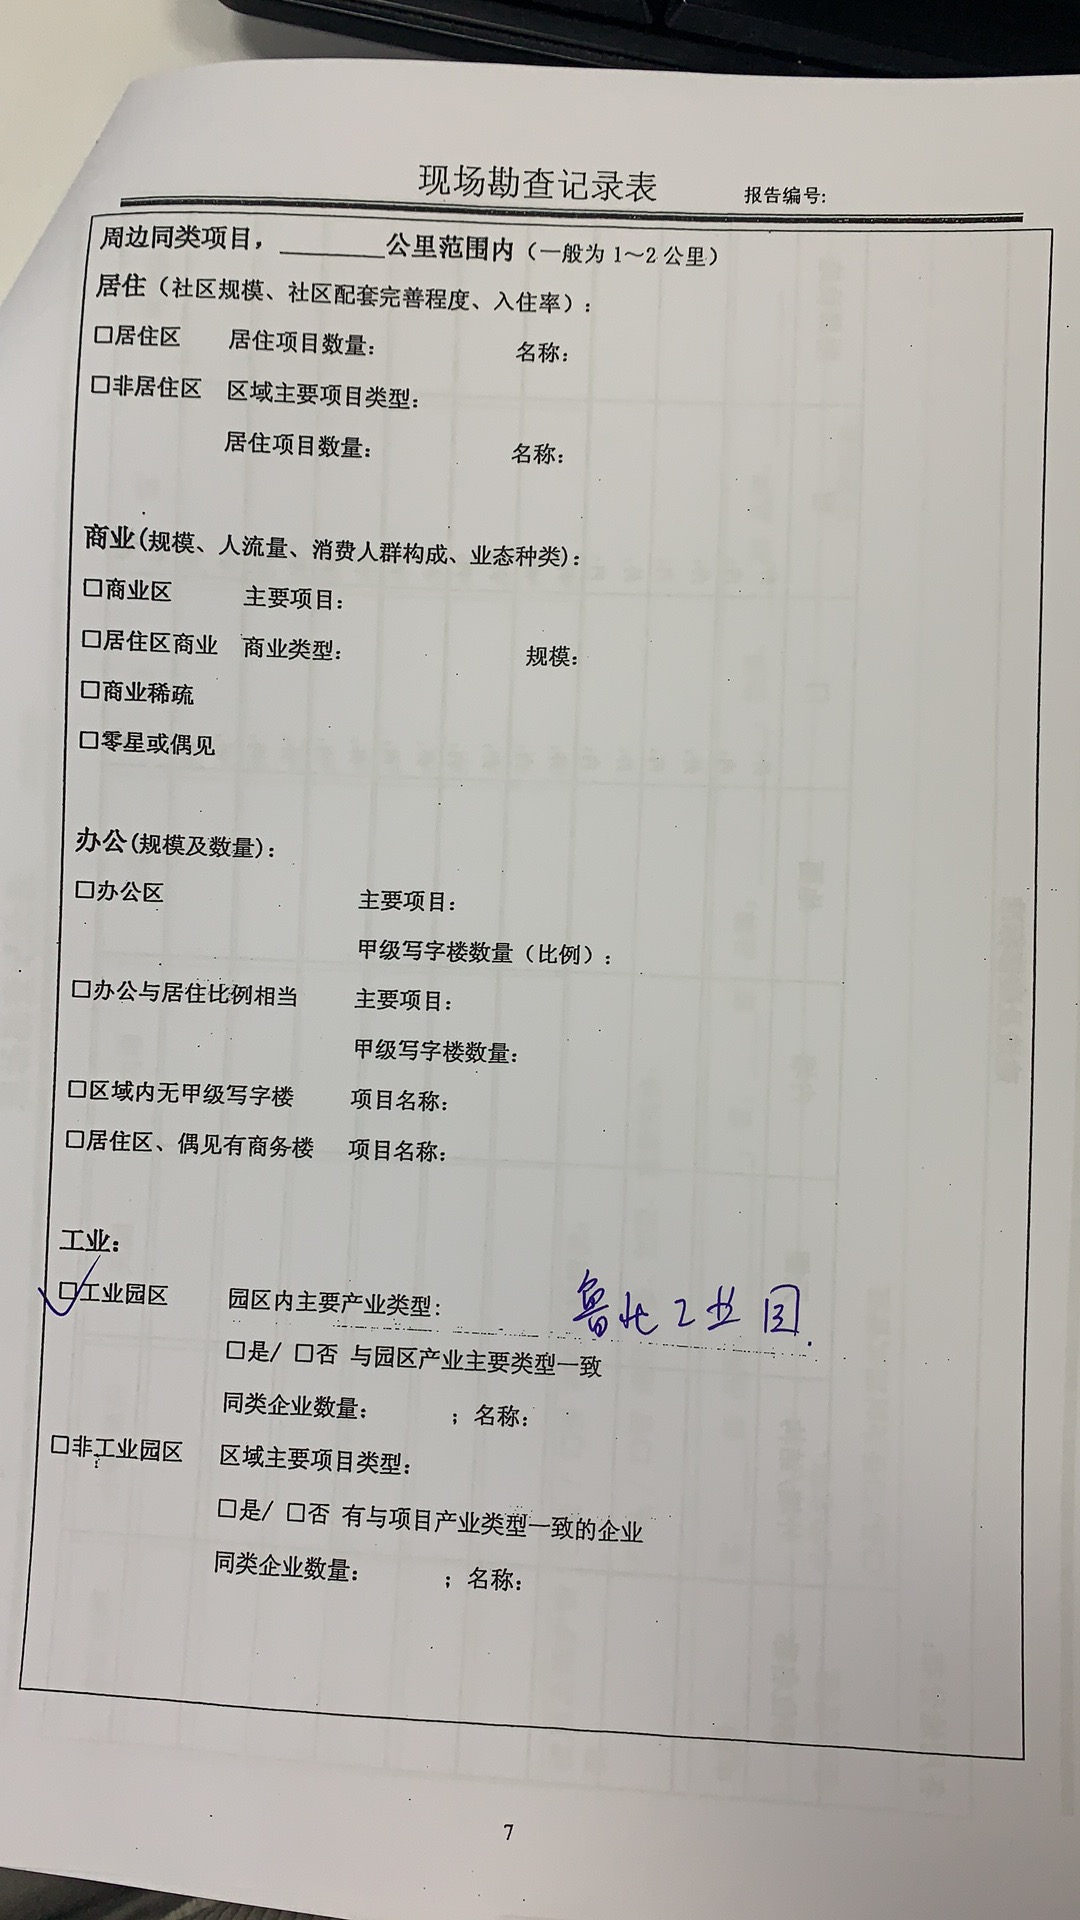 现场勘查记录表 报告编号:
周边同类项目，________公里范围内（一般为 1～2 公里）
居住（社区规模、社区配套完善程度、入住率）:
□居住区 居住项目数量: 名称:
□非居住区 区域主要项目类型:
居住项目数量: 名称:
商业(规模、人流量、消费人群构成、业态种类):
□商业区 主要项目:
□居住区商业 商业类型: 规模:
□商业稀疏
□零星或偶见
办公(规模及数量):
□办公区 主要项目:
甲级写字楼数量（比例）:
□办公与居住比例相当 主要项目:
甲级写字楼数量:
□区域内无甲级写字楼 项目名称:
□居住区、偶见有商务楼 项目名称:
工业:
☑工业园区 园区内主要产业类型: 鲁北工业园.
□是/ □否 与园区产业主要类型一致
同类企业数量: ；名称:
□非工业园区 区域主要项目类型:
□是/ □否 有与项目产业类型一致的企业
同类企业数量: ；名称:
7